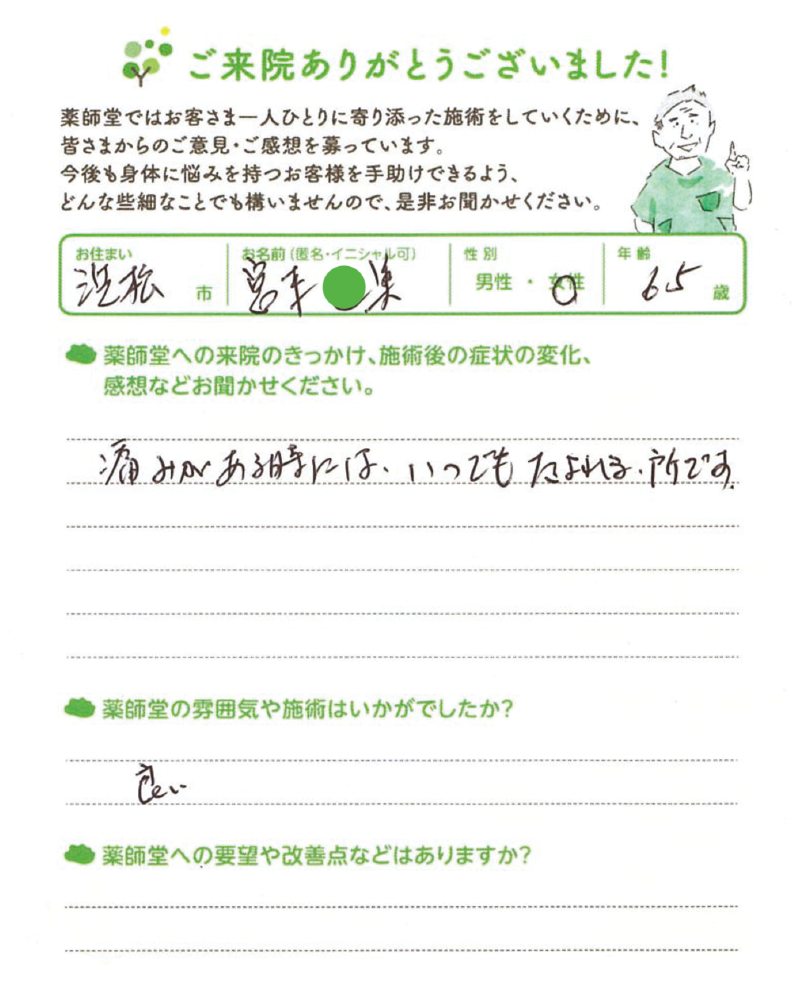 ご来院ありがとうございました!
薬師堂ではお客さま一人ひとりに寄り添った施術をしていくために、
皆さまからのご意見・ご感想を募っています。
今後も身体に悩みを持つお客様を手助けできるよう、
どんな些細なことでも構いませんので、是非お聞かせください。
お住まい お名前(匿名・イニシャル可) 性別 年齢
浜松 市 宮本 男性 ・ 女性 65 歳
薬師堂への来院のきっかけ、施術後の症状の変化、
感想などお聞かせください。
痛みがある時には、いつでもたよれる、所です。
薬師堂の雰囲気や施術はいかがでしたか?
良い
薬師堂への要望や改善点などはありますか?